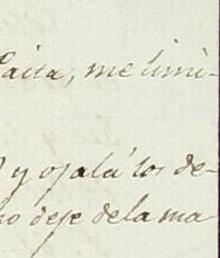 Paita, me limi-
y ojalá los de-
no deje de la ma